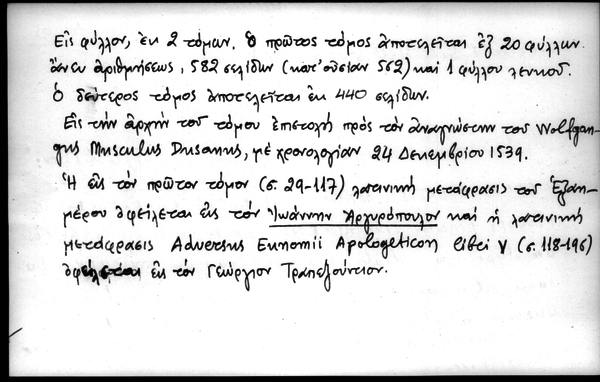 Εἰς φύλλον, ἐκ 2 τόμων. Ὁ πρῶτος τόμος ἀποτελεῖται ἐξ 20 φύλλων
ἄνευ ἀριθμήσεως, 582 σελίδων (κατ' οὐσίαν 562) καὶ 1 φύλλου λευκοῦ.
Ὁ δεύτερος τόμος ἀποτελεῖται ἐκ 440 σελίδων.
Εἰς τὴν ἀρχὴν τοῦ τόμου ἐπιστολὴ πρὸς τὸν ἀναγνώστην τοῦ Wolfgan-
gus Musculus Dusanus, μὲ χρονολογίαν 24 Δεκεμβρίου 1539.
Ἡ εἰς τὸν πρῶτον τόμον (σ. 29-117) λατινικὴ μετάφρασις τοῦ Ἑξαη-
μέρου ὀφείλεται εἰς τὸν Ἰωάννην Ἀργυρόπουλον καὶ ἡ λατινικὴ
μετάφρασις Adversus Eunomii Apologeticon libri V (σ. 118-196)
ὀφείλεται εἰς τὸν Γεώργιον Τραπεζούντιον.